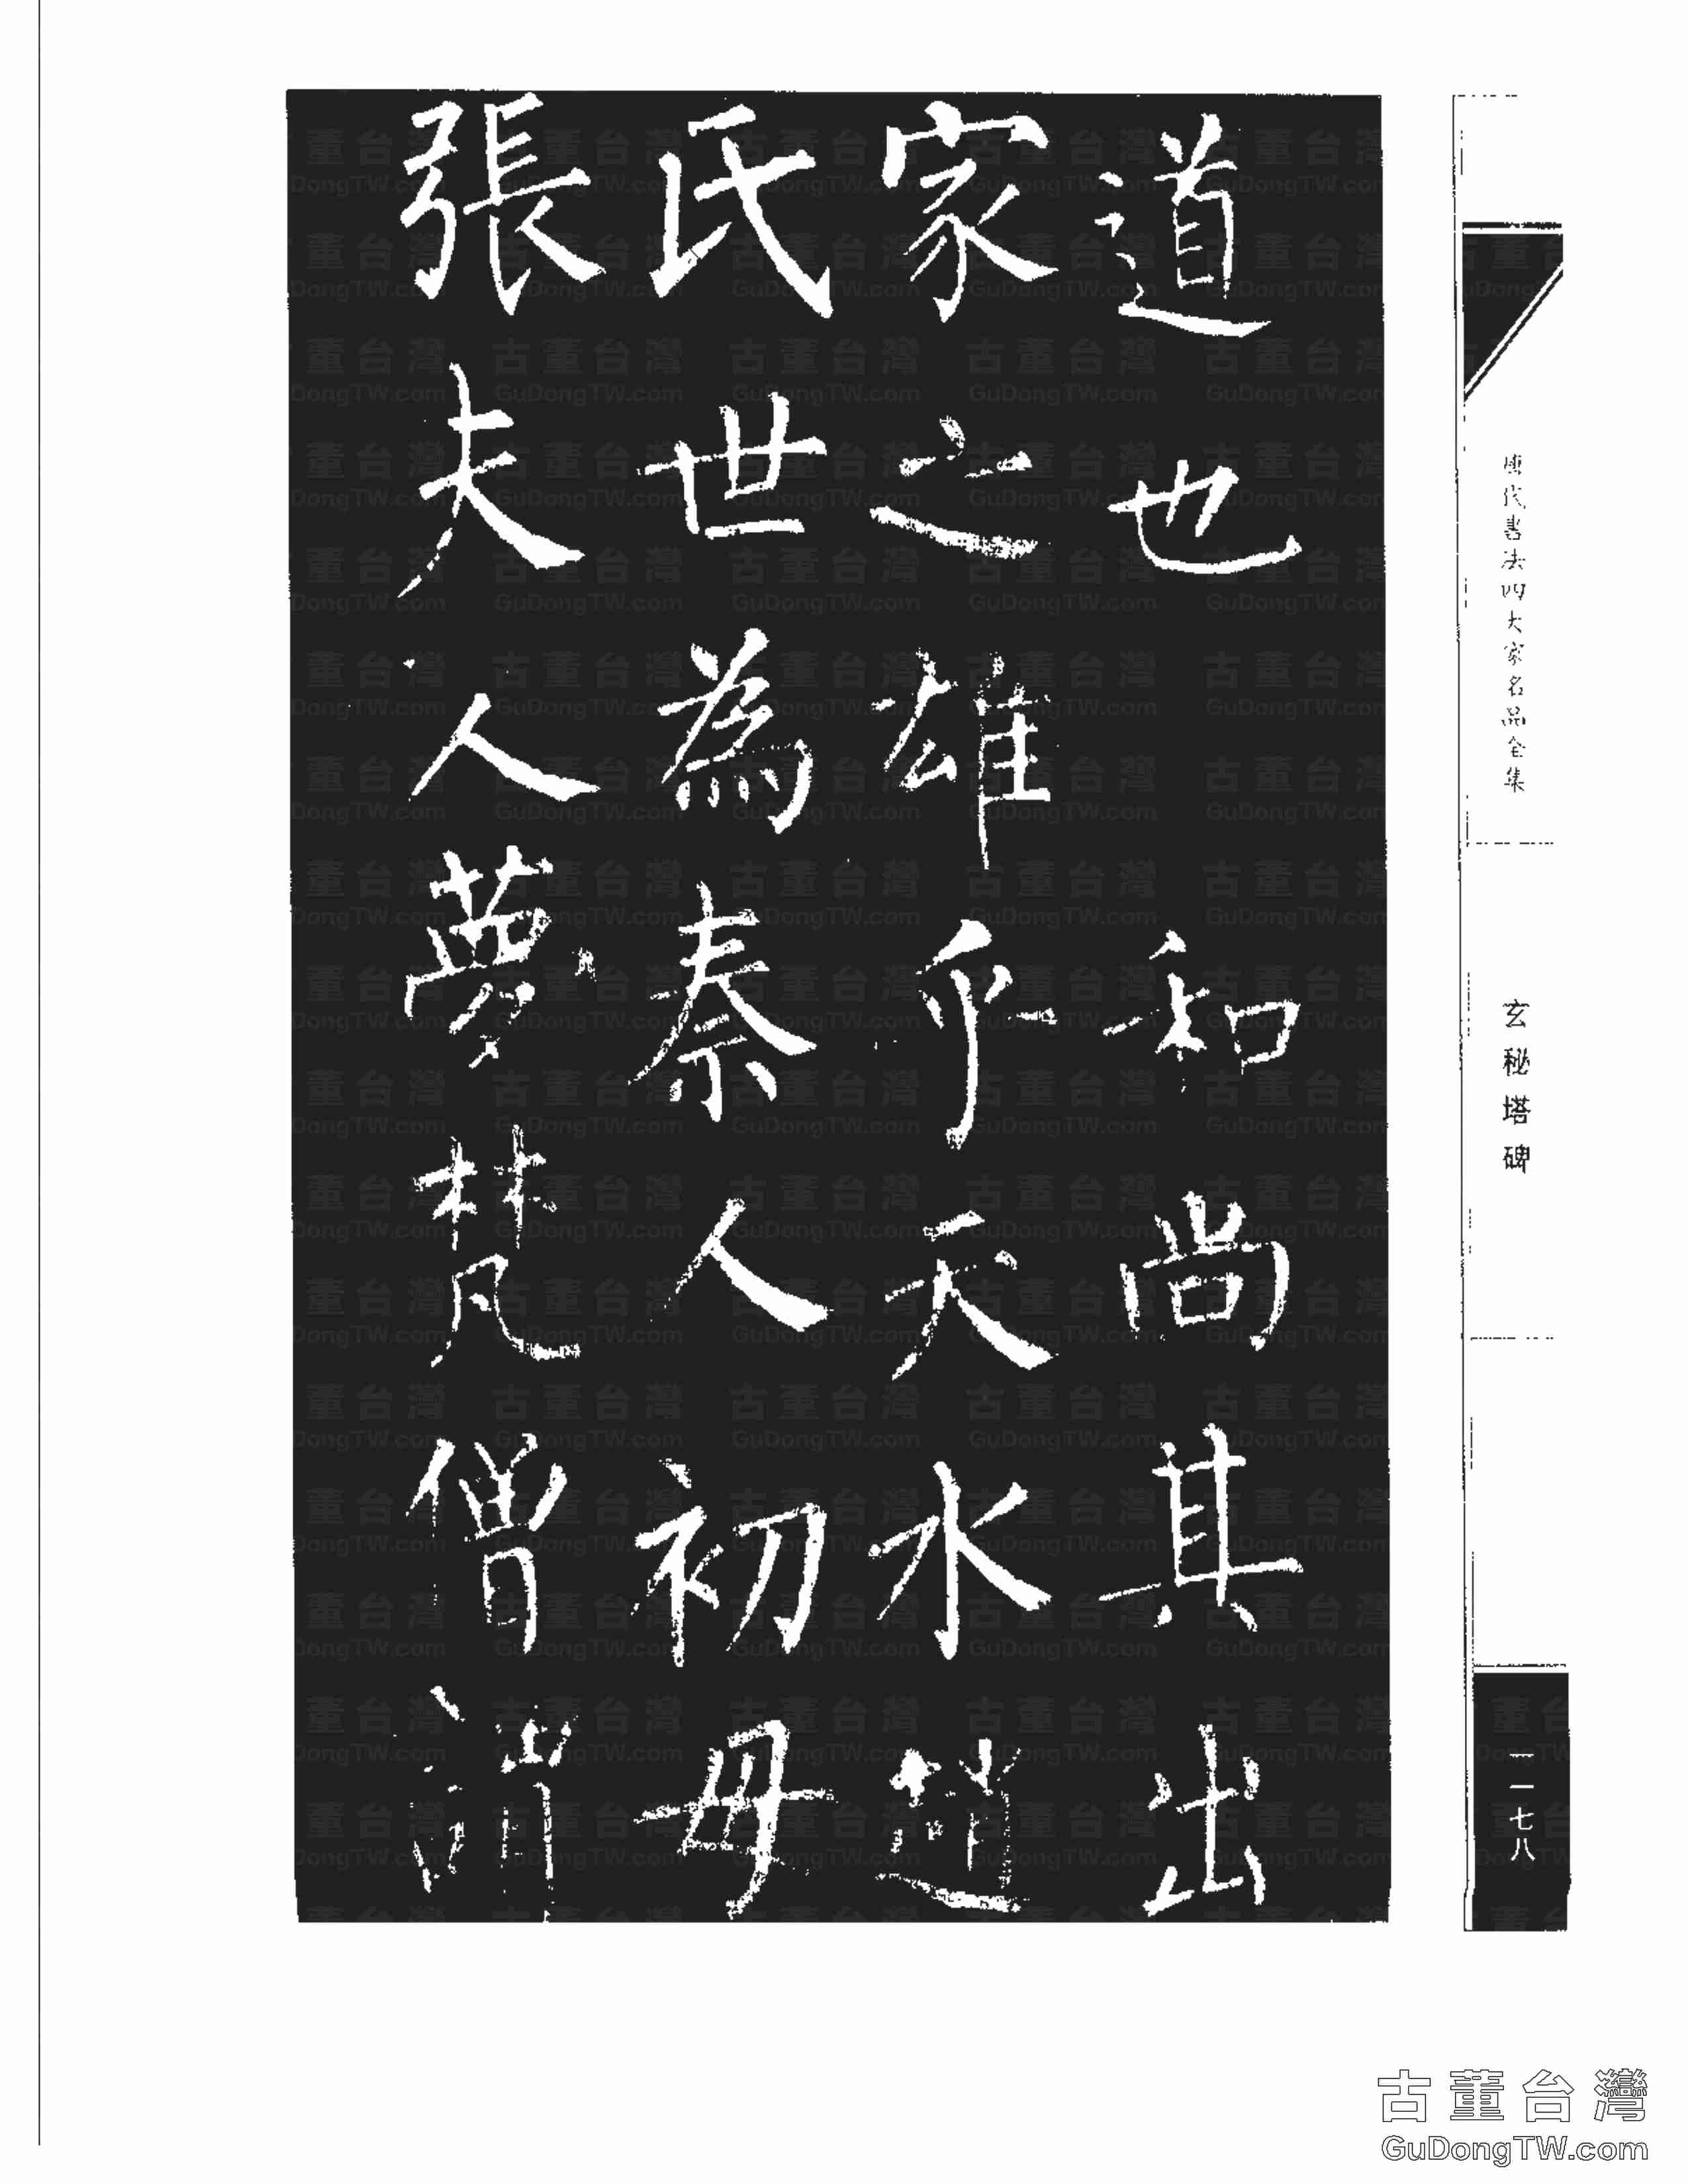 道也　和尚其出
家之雄乎天水趙
氏世為秦人初母
張夫人夢梵僧謂
唐代書法四大家名品全集
玄秘塔碑
一一七八
古董台灣
GuDongTW.com